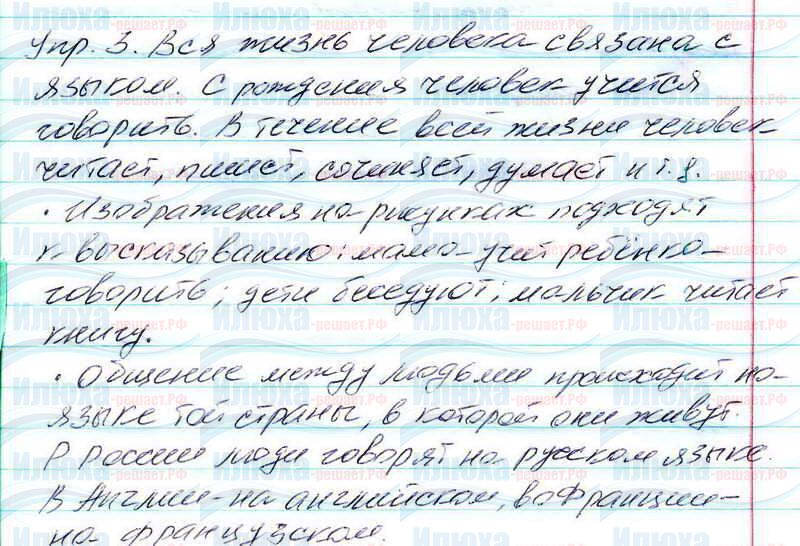 Упр. 3. Вся жизнь человека связана с
языком. С рождения человек учится
говорить. В течение всей жизни человек
читает, пишет, сочиняет, думает и т.д.
· Изображения на рисунках подходят
к высказыванию: мама учит ребёнка
говорить; дети беседуют; мальчик читает
книгу.
· Общение между людьми происходит на
языке той страны, в которой они живут.
В России люди говорят на русском языке.
В Англии - на английском, во Франции -
на французском.